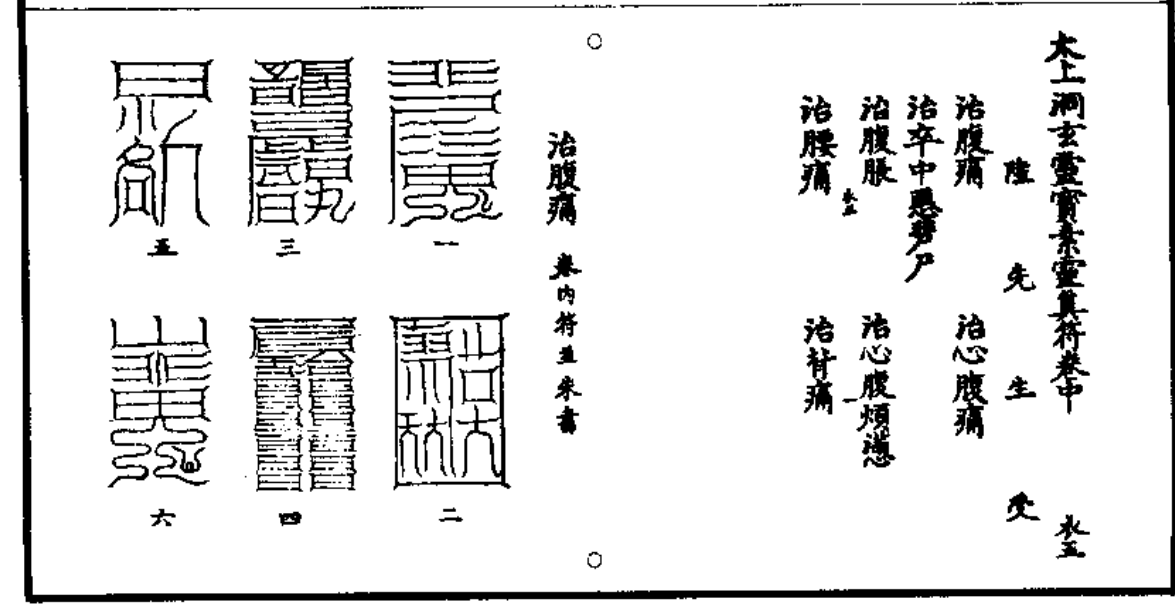 太上洞玄靈寶素靈真符卷中 衣五
陸先生受
治腹痛 治心腹痛
治卒中惡尸
治腹脹 治心腹煩懣
衣五
治腰痛 治背痛
治腹痛 卷內符並朱書
一 二
三 四
五 六